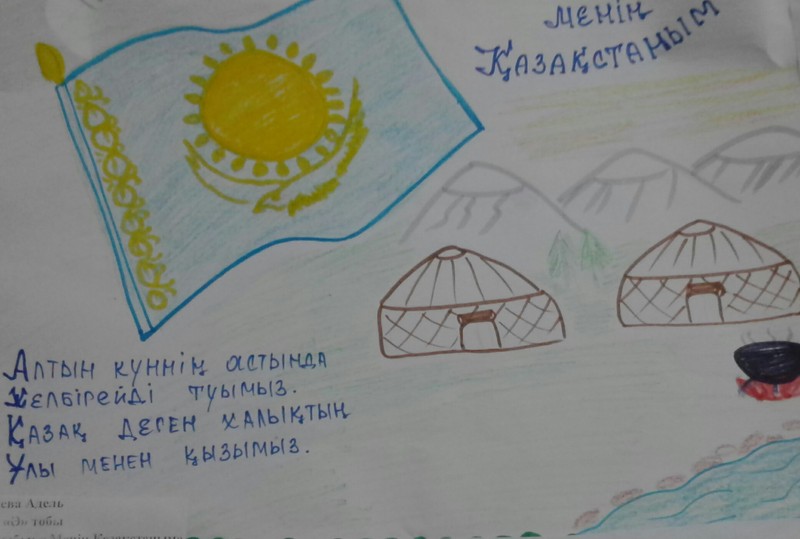 МЕНІҢ
ҚАЗАҚСТАНЫМ
АЛТЫН КҮННІҢ АСТЫНДА
ЖЕЛБІРЕЙДІ ТУЫМЫЗ.
ҚАЗАҚ ДЕГЕН ХАЛЫҚТЫҢ
ҰЛЫ МЕНЕН ҚЫЗЫМЫЗ.
ева Адель
«Ә» тобы